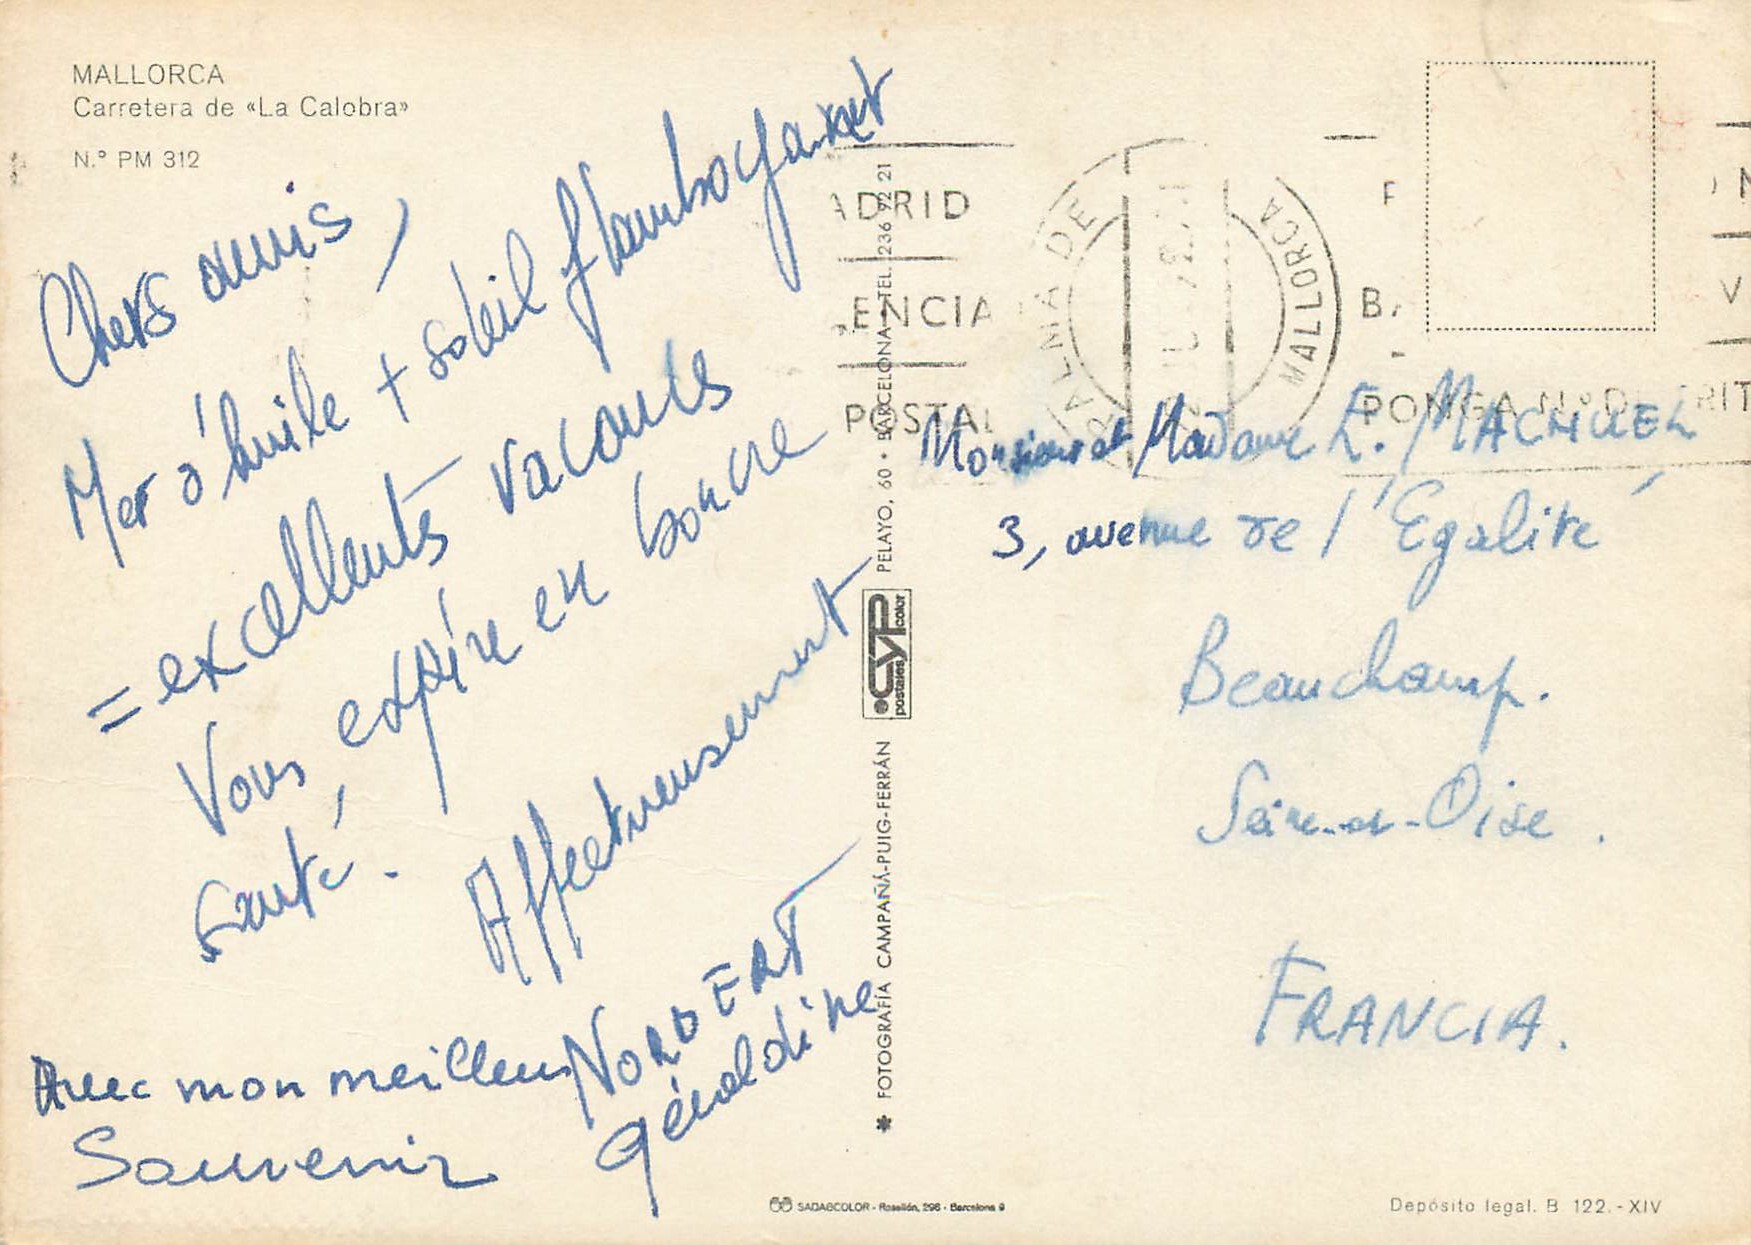 MALLORCA
Carretera de «La Calobra»
N.º PM 312
Chers amis,
Mer d'huile + soleil flamboyant
= excellents vacances
Vous espère en bonne
santé.
Affectueusement
NORBERT
Géraldine
Avec mon meilleur
Souvenir
FOTOGRAFÍA CAMPAÑÁ-PUIG-FERRÁN
CYP
postales color
PELAYO, 60 • BARCELONA - TEL. 236 92 21
ADRID
ENCIA
POSTAL
PALMA DE
MALLORCA
PONGA N.º D RIT
Monsieur et Madame E. MACHUEL
3, avenue de l'Egalité
Beauchamp.
Seine-et-Oise.
FRANCIA.
SADAGCOLOR - Rosellón, 298 - Barcelona 9
Depósito legal. B 122.-XIV